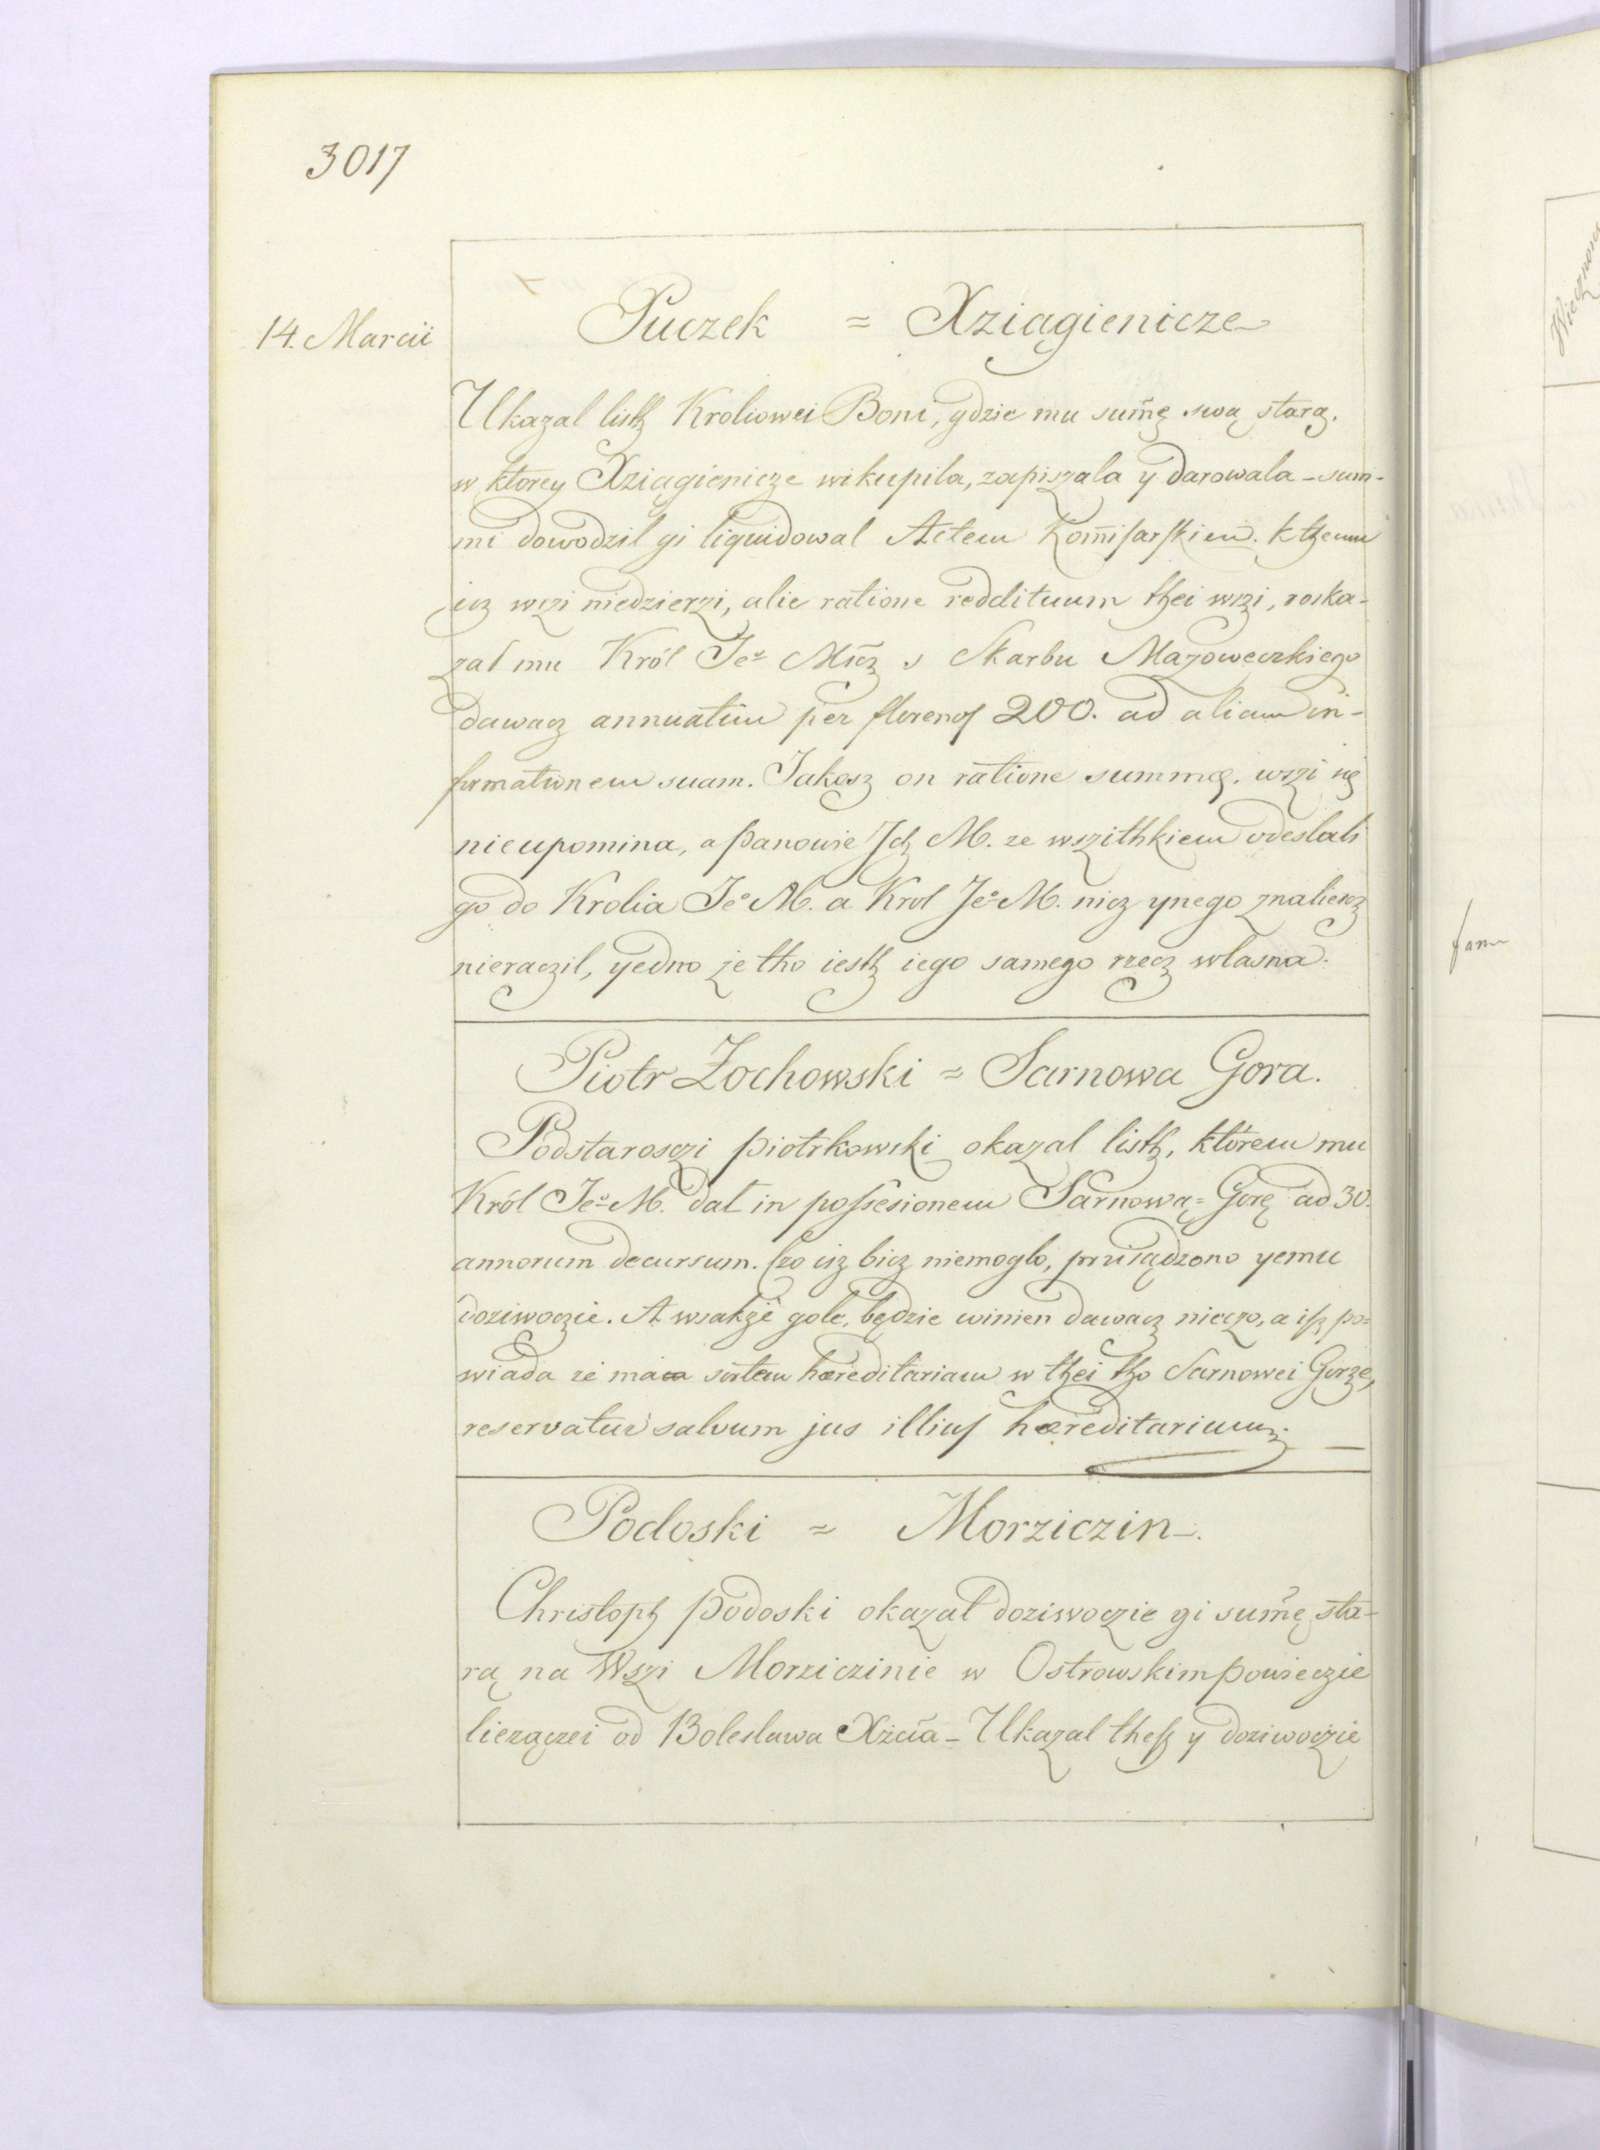 3017
14. Marcii
Puczek = Xziagienicze
Ukazal listh Kroliowei Boni, gdzie mu sum̃ę swą starą.
w ktorey Xziagienicze wikupila, zapiszala y darowala - sum-
mi dowodzil gi liquidowal Actem Kom̃isarskiem. k themu
isz wszi niedzierzi, alie ratione reddituum thei wszi, roska-
zal mu Król Je° Mścz s Skarbu Mazoweczkiego
dawacz annuatim per florenos 200. ad aliam in-
formationem suam. Jakosz on ratione summę. wszi ię
nieupomina, a panowie Ich M. ze wszithkiem odeslali
go do Krolia Je° M. a Krol Je° M. nicz ynego znaliescz
nieraczil, yedno ze tho iesth iego samego rzecz wlasna.
Piotr Zochowski = Sarnowa Gora.
Podstarosczi piotrkowski okazal listh, któremu mu
Król Je° M. dal in possesionem Sarnową = Gorę ad 30.
annorum decursum. Czo isz bicz niemoglo, prrisądzono yemu
doziwoczie. A wsakże gole, będzie winien dawacz nieczo, a isz po=
wiada ze maia sortem hæreditariam w thei tho Sarnowei Gorze,
reservatur salvum jus illius hæreditarium.
Podoski = Morziczin.
Christoph podoski okazał doziwoczie gi sum̃ę sta-
rą na Wszi Morziczinie w Ostrowskim powieczie
liezączei od Boleslawa Xżcia - Ukazal thesz y doziwoczie